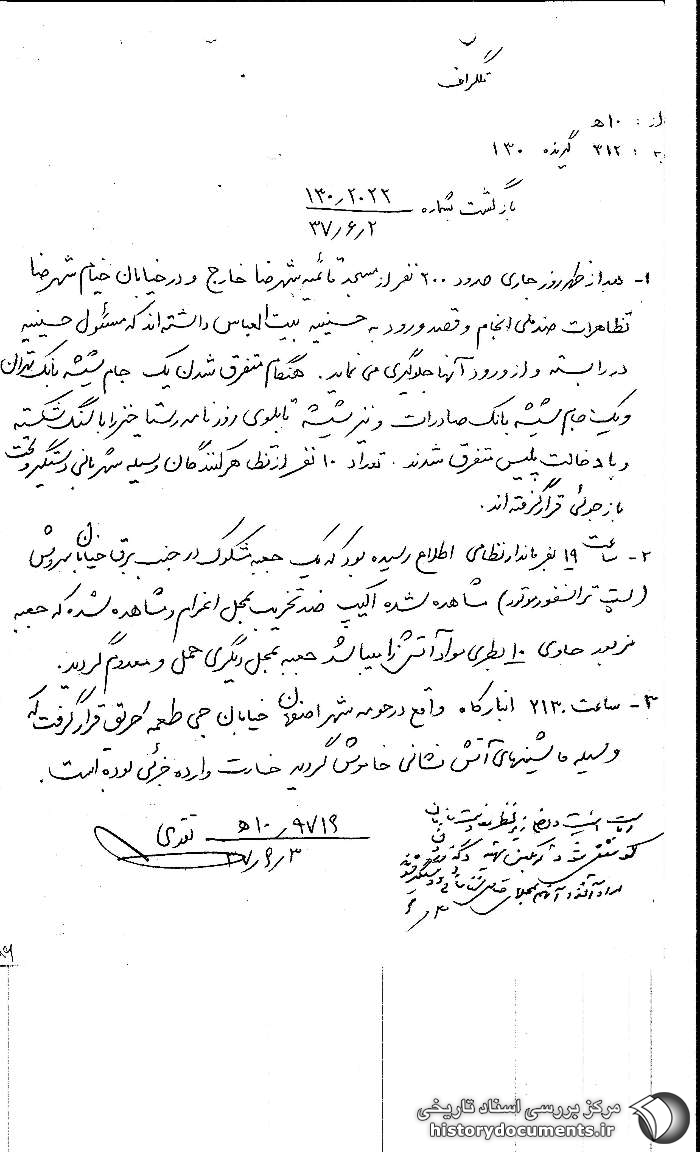 تلگراف
از : ۱۰ﻫ
به : ۳۱۲ گیرنده ۱۳۰
بازگشت شماره ۱۳۰٫۲۰۲۲
۳۷٫۶٫۲
۱- بعد از ظهر روز جاری حدود ۲۰۰ نفر از مسجد قائمیه شهرضا خارج و در خیابان خیام شهرضا
تظاهرات ضد ملی انجام و قصد ورود به حسینیه بیت العباس داشته‌اند که مسئول حسینیه
در را بسته و از ورود آنها جلوگیری می نماید. هنگام متفرق شدن یک جام شیشه بانک تهران
و یک جام شیشه بانک صادرات و نیز شیشه تابلوی روزنامه رستاخیز را با سنگ شکسته
و با دخالت پلیس متفرق شدند. تعداد ۱۰ نفر از تظاهرکنندگان وسیله شهربانی دستگیر و تحت
بازجوئی قرار گرفته‌اند.
۲- ساعت ۱۹ بفرماندار نظامی اطلاع رسیده بود که یک جعبه مشکوک در جنب برق خیابان سروش
(پست ترانسفورموتور) مشاهده شده اکیپ ضد تخریب بمحل اعزام و مشاهده شده که جعبه
مزبور حاوی ۱۰ بطری مواد آتش زا میباشد جعبه بمحل دیگری حمل و معدوم گردید.
۳- ساعت ۲۱۳۰ انبار کاه واقع در حومه شهر اصفهان خیابان جی طعمه حریق قرار گرفت که
وسیله ماشینهای آتش نشانی خاموش گردید خسارت وارده جزئی بوده است.
۱۰ﻫ٫۹۷۱۶ تقوی
۳۷٫۶٫۳
مرکز بررسی اسناد تاریخی
historydocuments.ir